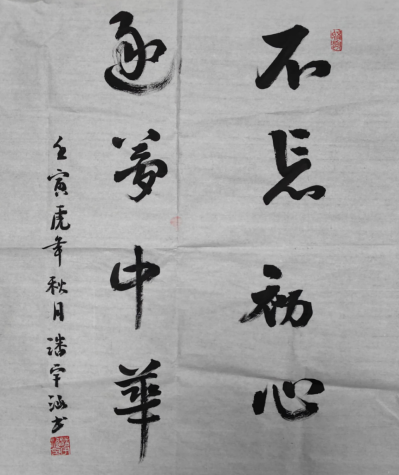 不忘初心
逐夢中華
壬寅虎年秋月潘宇涵书